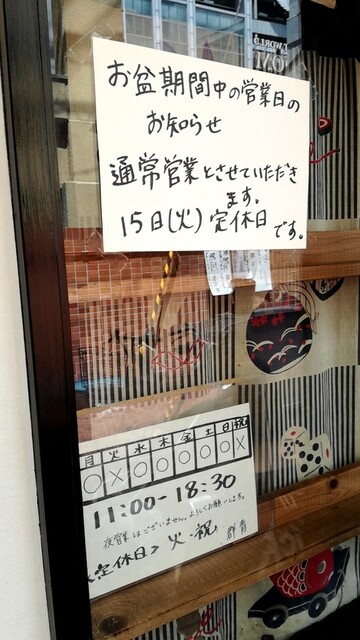 お盆期間中の営業日の
お知らせ
通常営業とさせていただき
ます。
15日(火)定休日です。
月 火 水 木 金 土 日 祝
○ × ○ ○ ○ ○ ○ ×
11:00-18:30
夜営業はございません。よろしくお願いします。
定休日 火・祝
群青